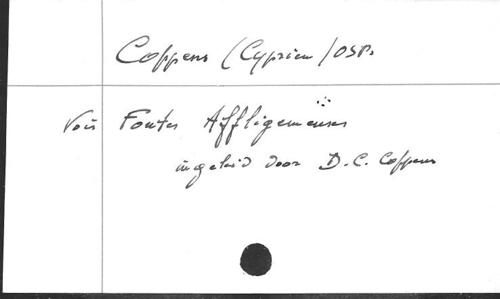 Coppens (Cyprien) OSB.
Voir Fontes Affligemenses
ingeleid door D. C. Coppens